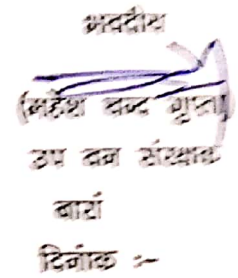 भवदीय
(महेश चन्द गुप्ता)
उप वन संरक्षक
बारां
दिनांक :-